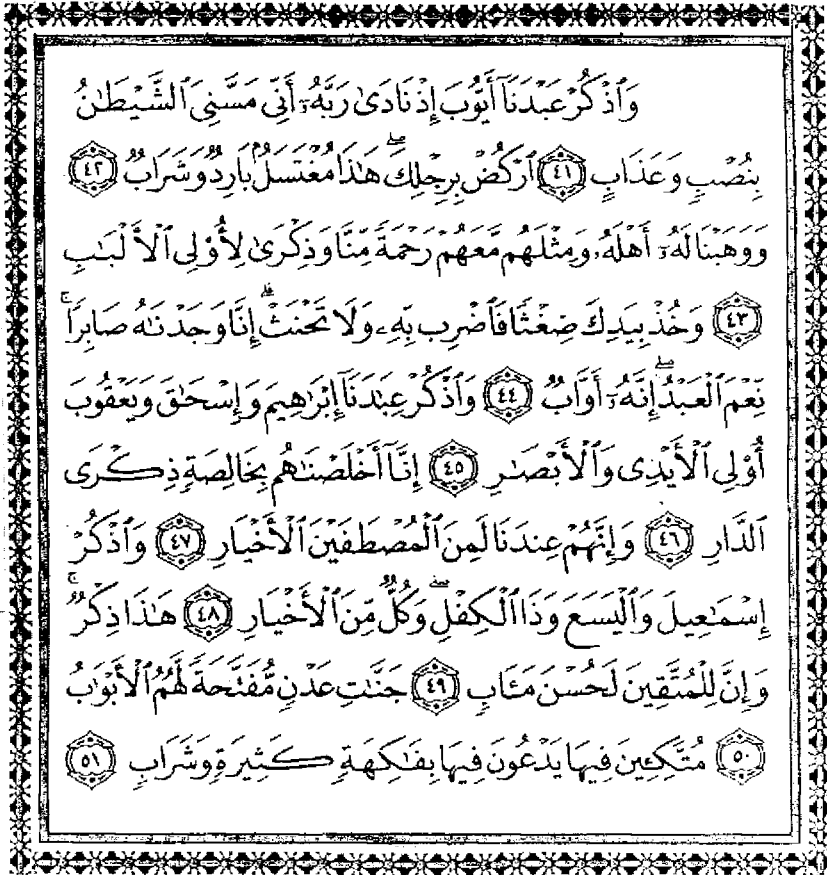 وَٱذْكُرْ عَبْدَنَآ أَيُّوبَ إِذْ نَادَىٰ رَبَّهُۥٓ أَنِّى مَسَّنِىَ ٱلشَّيْطَـٰنُ
بِنُصْبٍ وَعَذَابٍ ﴿٤١﴾ ٱرْكُضْ بِرِجْلِكَ ۖ هَـٰذَا مُغْتَسَلٌۢ بَارِدٌ وَشَرَابٌ ﴿٤٢﴾
وَوَهَبْنَا لَهُۥٓ أَهْلَهُۥ وَمِثْلَهُم مَّعَهُمْ رَحْمَةً مِّنَّا وَذِكْرَىٰ لِأُو۟لِى ٱلْأَلْبَـٰبِ
﴿٤٣﴾ وَخُذْ بِيَدِكَ ضِغْثًا فَٱضْرِب بِّهِۦ وَلَا تَحْنَثْ ۗ إِنَّا وَجَدْنَـٰهُ صَابِرًا ۚ
نِّعْمَ ٱلْعَبْدُ ۖ إِنَّهُۥٓ أَوَّابٌ ﴿٤٤﴾ وَٱذْكُرْ عِبَـٰدَنَآ إِبْرَٰهِيمَ وَإِسْحَـٰقَ وَيَعْقُوبَ
أُو۟لِى ٱلْأَيْدِى وَٱلْأَبْصَـٰرِ ﴿٤٥﴾ إِنَّآ أَخْلَصْنَـٰهُم بِخَالِصَةٍ ذِكْرَى
ٱلدَّارِ ﴿٤٦﴾ وَإِنَّهُمْ عِندَنَا لَمِنَ ٱلْمُصْطَفَيْنَ ٱلْأَخْيَارِ ﴿٤٧﴾ وَٱذْكُرْ
إِسْمَـٰعِيلَ وَٱلْيَسَعَ وَذَا ٱلْكِفْلِ ۖ وَكُلٌّ مِّنَ ٱلْأَخْيَارِ ﴿٤٨﴾ هَـٰذَا ذِكْرٌ ۚ
وَإِنَّ لِلْمُتَّقِينَ لَحُسْنَ مَـَٔابٍ ﴿٤٩﴾ جَنَّـٰتِ عَدْنٍ مُّفَتَّحَةً لَّهُمُ ٱلْأَبْوَٰبُ
﴿٥٠﴾ مُتَّكِـِٔينَ فِيهَا يَدْعُونَ فِيهَا بِفَـٰكِهَةٍ كَثِيرَةٍ وَشَرَابٍ ﴿٥١﴾